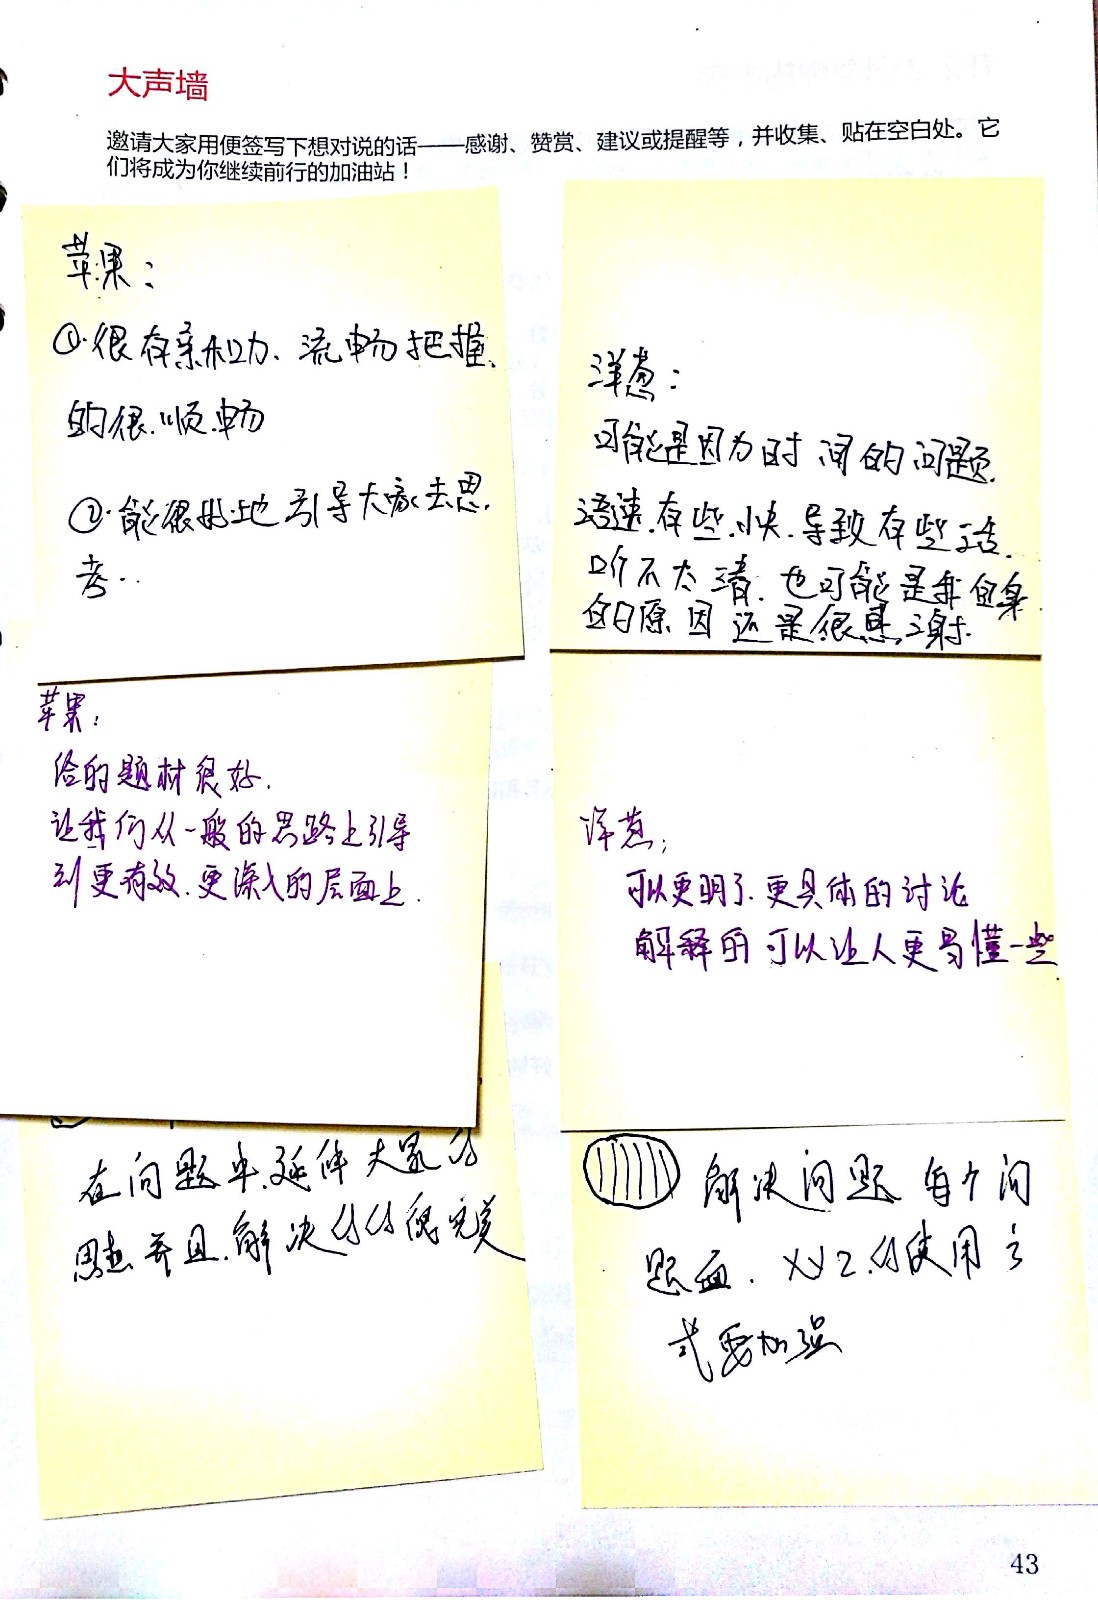 大声墙
邀请大家用便签写下想对说的话——感谢、赞赏、建议或提醒等，并收集、贴在空白处。它
们将成为你继续前行的加油站！
苹果：
①.很有亲和力、流畅把握
的很顺畅
②.能很好地引导大家去思
考..
洋葱：
可能是因为时间的问题.
语速有些小快.导致有些话
听不太清.也可能是我自身
的原因还是很感谢.
苹果：
给的题材很好.
让我们从一般的思路上引导
到更有效.更深入的层面上.
洋葱：
可以更明了.更具体的讨论
解释的可以让人更易懂一些
在问题中.延伸大家的
思想并且.解决的完美
解决问题 每个问
题面. 的使用方
式要加强
43